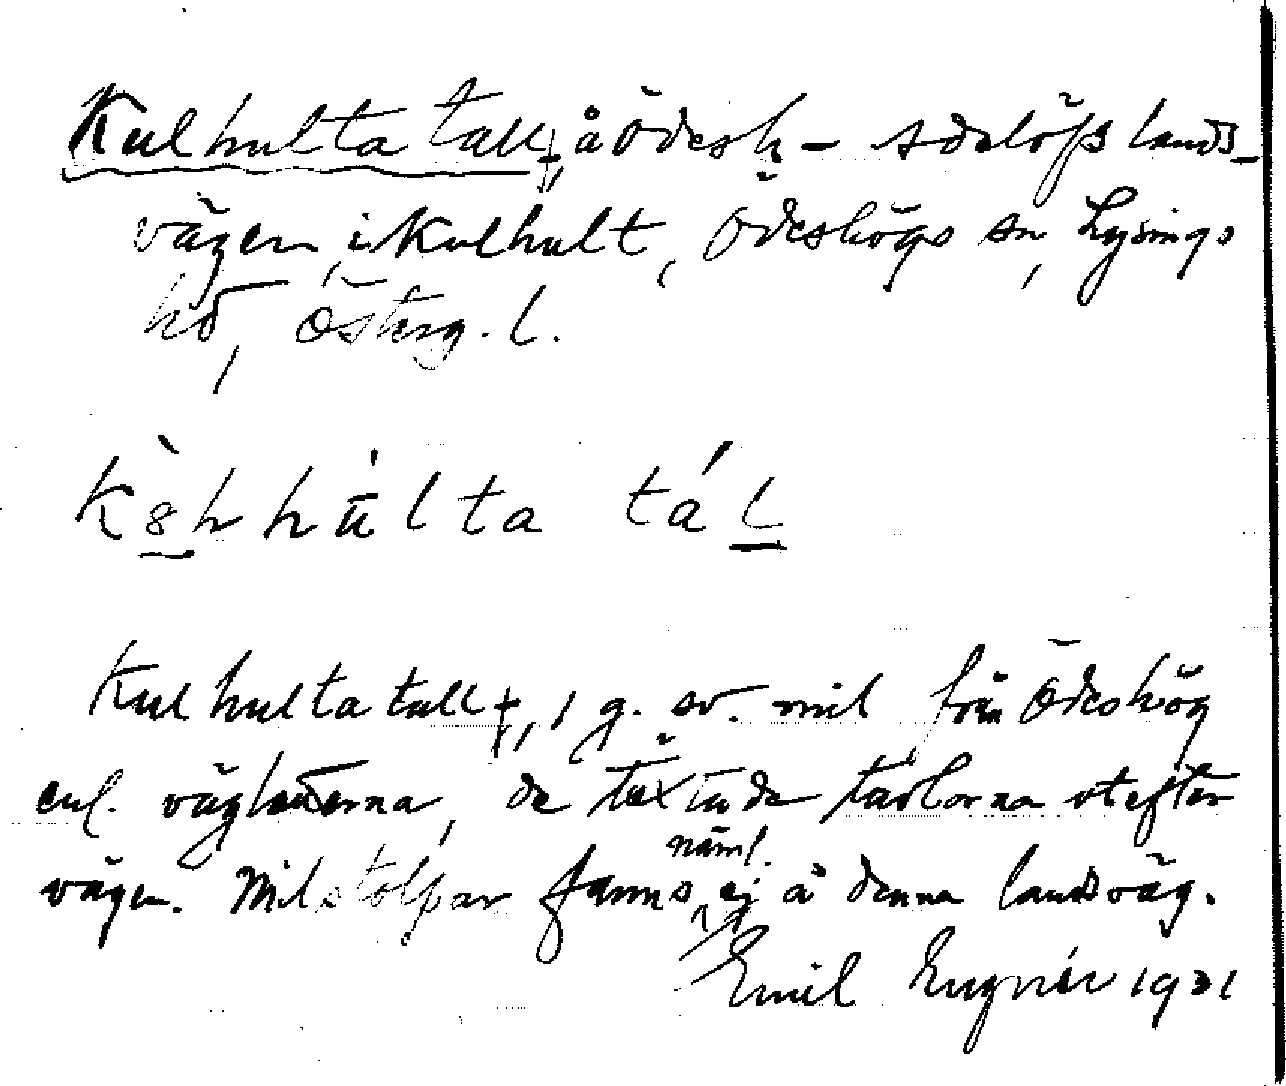 Kulhulta tall †, å Ödesh – Adelöfs lands-
vägen, i Kulhult, Ödeshögs sn, Lysings
hd, Österg. l.
tál
Kulhulta tall †, 1 g. sv. mil från Ödeshög
enl. väglederna, de täxtade tavlorna utefter
vägen. Milstolpar fanns näml. ej å denna landsväg.
Emil 1921